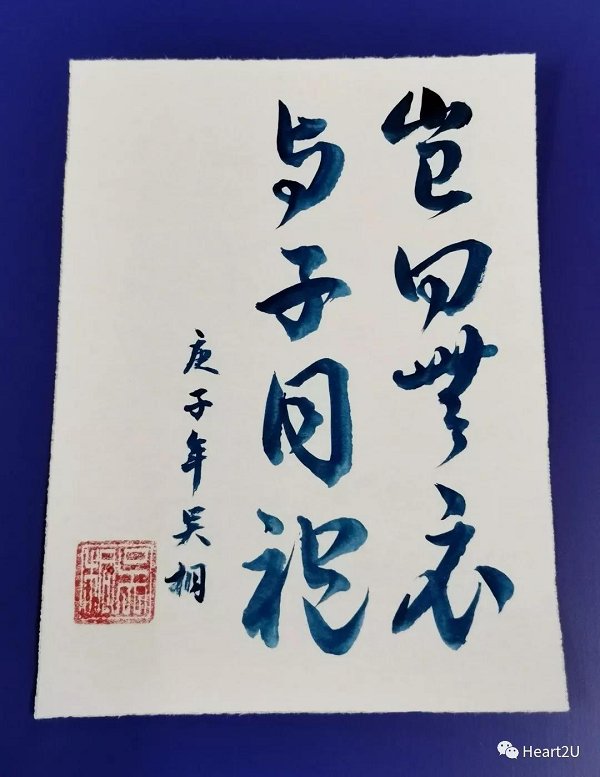 岂曰無衣
与子同袍
庚子年吴桐
Heart2U